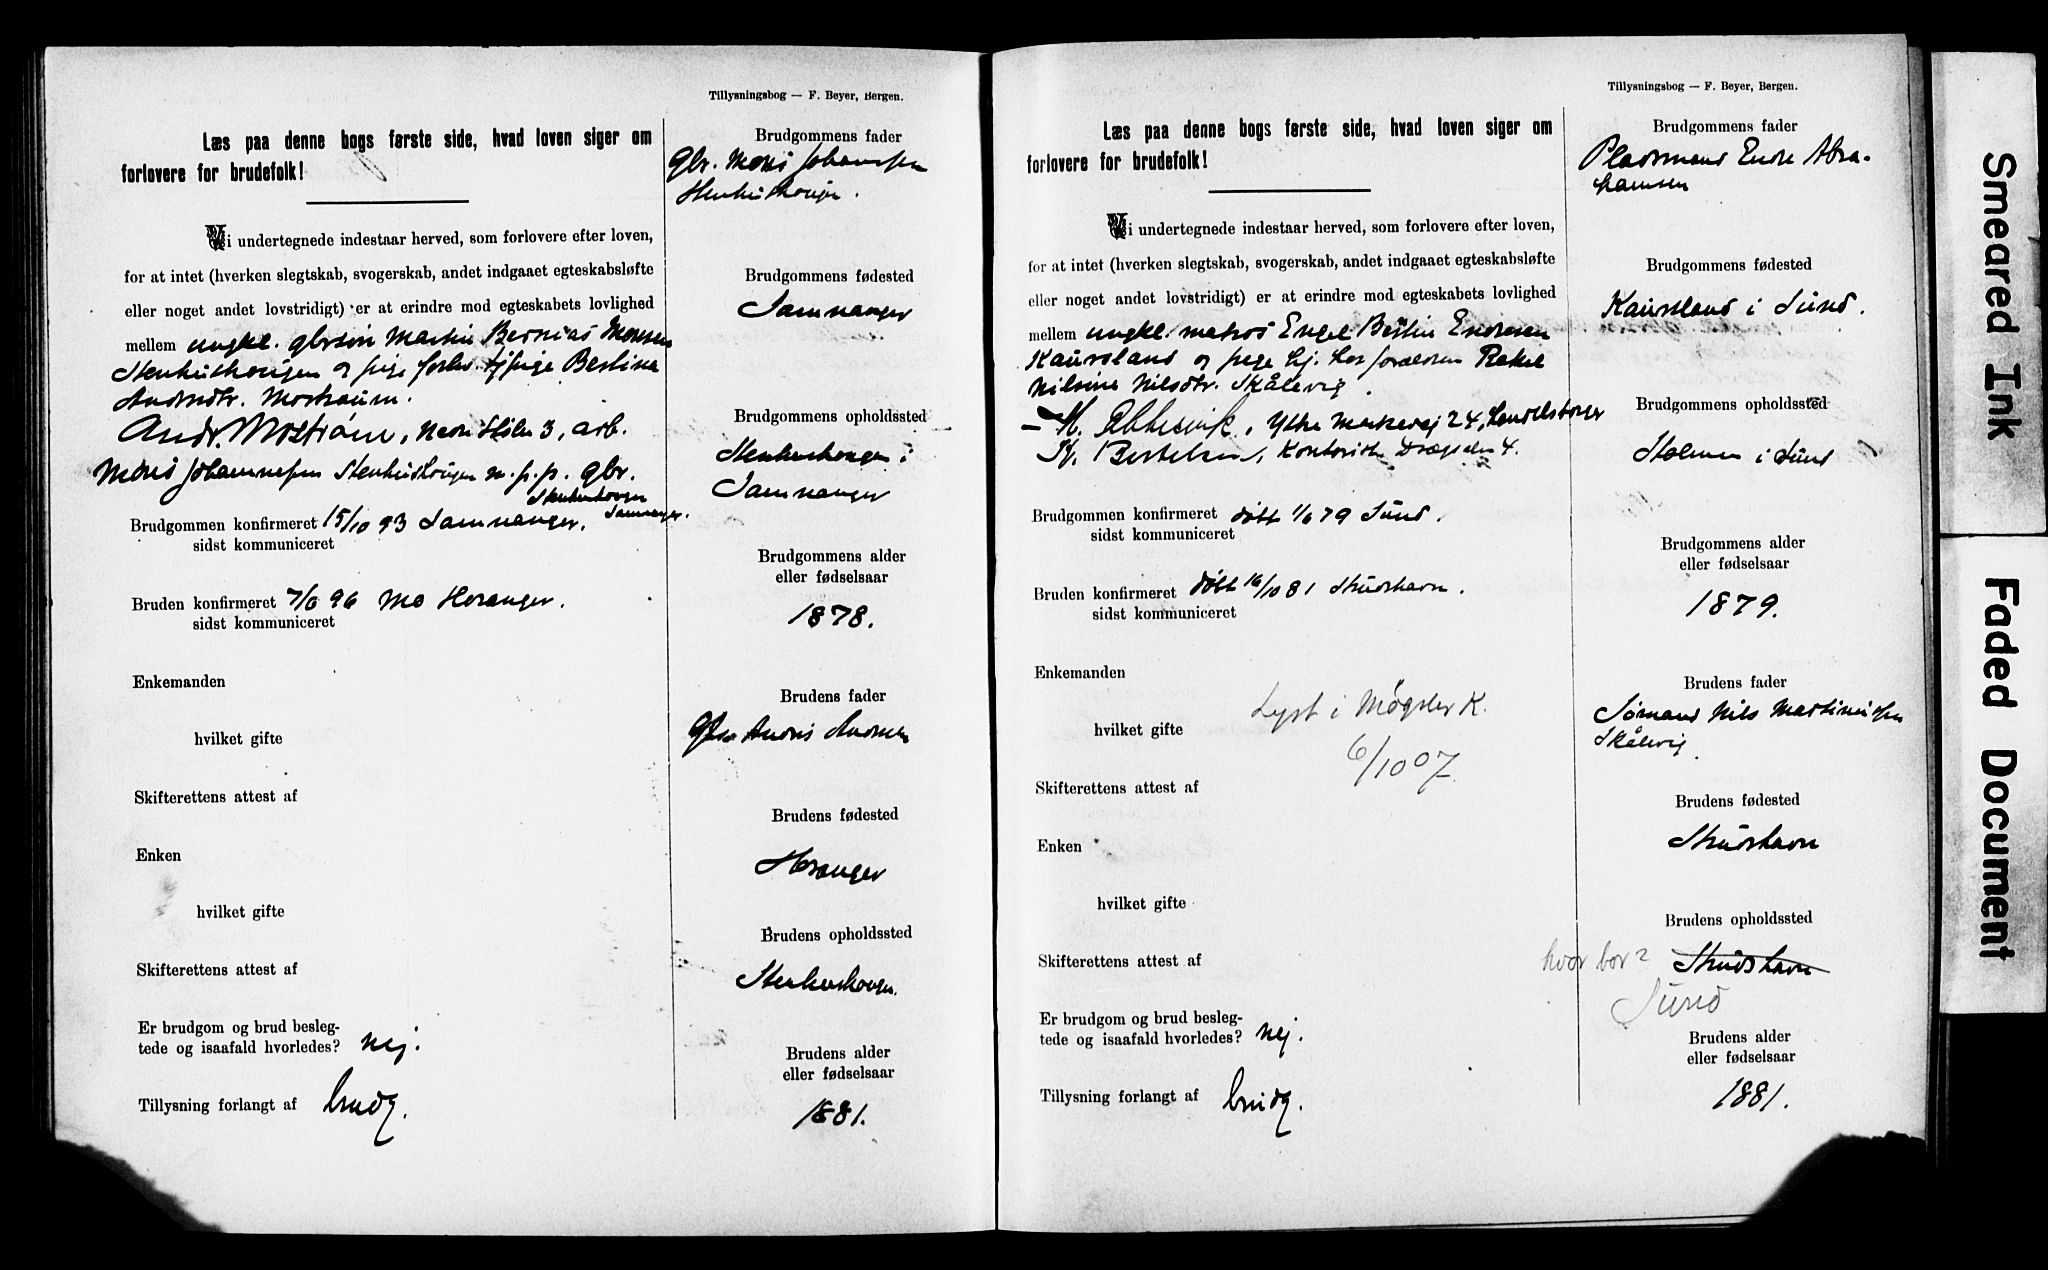 Tillysningsbog — F. Beyer, Bergen.
Læs paa denne bogs første side, hvad loven siger om
forlovere for brudefolk!
Vi undertegnede indestaar herved, som forlovere efter loven,
for at intet (hverken slegtskab, svogerskab, andet indgaaet egteskabsløfte
eller noget andet lovstridigt) er at erindre mod egteskabets lovlighed
mellem ungkl. gbrsøn Martin Bernias Monsen
Stenhushougen og pige Berlina
Andrsdtr. Mostraum.
Andr. Mostrøm, 3, arb.
Mons Johannesen Stenhushougen m. p. p. gbr.
Stenhushougen
Samnanger.
Brudgommen konfirmeret 15/10 93 Samnanger.
sidst kommuniceret
Bruden konfirmeret 7/6 96 Mo Hosanger.
sidst kommuniceret
Enkemanden
hvilket gifte
Skifterettens attest af
Enken
hvilket gifte
Skifterettens attest af
Er brudgom og brud besleg-
tede og isaafald hvorledes? nej.
Tillysning forlangt af brudg.
Brudgommens fader
gbr. Mons Johannesen
Stenhushougen.
Brudgommens fødested
Samnanger
Brudgommens opholdssted
Stenhushougen i
Samnanger
Brudgommens alder
eller fødselsaar
1878.
Brudens fader
Gbr. Anders Andersen
Brudens fødested
Hosanger
Brudens opholdssted
Stenhushougen.
Brudens alder
eller fødselsaar
1881.
Tillysningsbog — F. Beyer, Bergen.
Læs paa denne bogs første side, hvad loven siger om
forlovere for brudefolk!
Vi undertegnede indestaar herved, som forlovere efter loven,
for at intet (hverken slegtskab, svogerskab, andet indgaaet egteskabsløfte
eller noget andet lovstridigt) er at erindre mod egteskabets lovlighed
mellem ungkl. matros Engel Bertin Endresen
Kaursland og pige hj. hos forældrene Rakel
Nilsine Nilsdtr. Skålevig
M. Ytre Markevej 24, Handelsborger
Bertelsen, Kontorist Dræggden 4.
Brudgommen konfirmeret døbt 1/6 79 Sund.
sidst kommuniceret
Bruden konfirmeret døbt 16/10 81 Strudshavn.
sidst kommuniceret
Enkemanden
hvilket gifte
Lyst i Møgster K.
6/10 07
Skifterettens attest af
Enken
hvilket gifte
Skifterettens attest af
Er brudgom og brud besleg-
tede og isaafald hvorledes? nej.
Tillysning forlangt af brudg.
Brudgommens fader
Pladsmand Endre Abra-
hamsen
Brudgommens fødested
Kaursland i Sund.
Brudgommens opholdssted
Stolmen i Sund
Brudgommens alder
eller fødselsaar
1879.
Brudens fader
Sømand Nils Martinussen
Skålevig
Brudens fødested
Strudshavn
Brudens opholdssted
hvor bor? Strudshavn
Sund
Brudens alder
eller fødselsaar
1881.
Smeared Ink
Faded Document